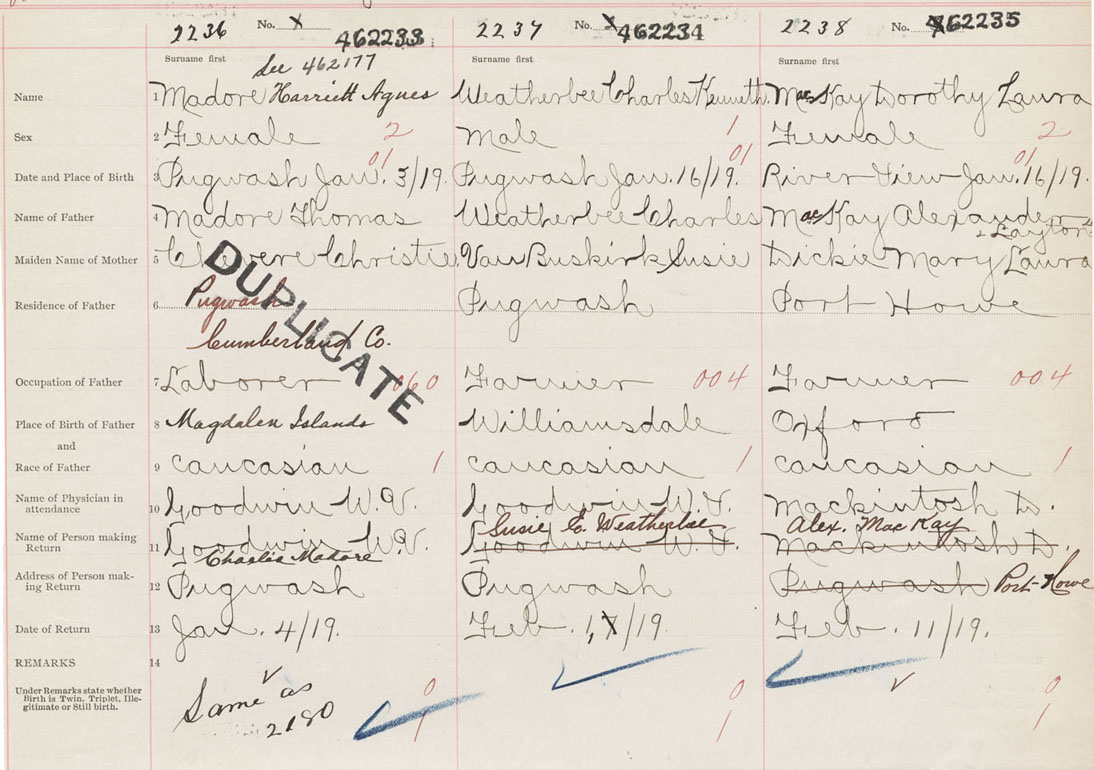 2236 No. X 462233 2237 No. X 462234 2238 No. X 462235
Surname first Surname first Surname first
See 462177
Name 1 Madore Harriett Agnes Weatherbee Charles Kenneth MacKay Dorothy Laura
Sex 2 Female 2 Male 1 Female 2
01 01 01
Date and Place of Birth 3 Pugwash Jan. 3/19. Pugwash Jan. 16/19. River View Jan. 16/19.
Name of Father 4 Madore Thomas Weatherbee Charles MacKay Alexander
Layton
Maiden Name of Mother 5 Christie Van Buskirk Susie Dickie Mary Laura
DUPLICATE
Residence of Father 6 Pugwash Pugwash Port Howe
Cumberland Co.
Occupation of Father 7 Laborer 060 Farmer 004 Farmer 004
Place of Birth of Father 8 Magdalen Islands Williamsdale Oxford
and
Race of Father 9 Caucasian 1 Caucasian 1 Caucasian 1
Name of Physician in
attendance 10 Goodwin W.V. Goodwin W.V. Mackintosh D.
Susie E. Weatherbee Alex. MacKay
Name of Person making
Return 11 Goodwin W.V. Goodwin W.V. Mackintosh D.
Charlie Madore
Address of Person mak-
ing Return 12 Pugwash Pugwash Pugwash Port-Howe
Date of Return 13 Jan. 4/19. Feb. /19 Feb. 11/19.
REMARKS 14
Under Remarks state whether
Birth is Twin, Triplet, Ille-
gitimate or Still birth.
Same as
2180
0 0 0
1 1 1